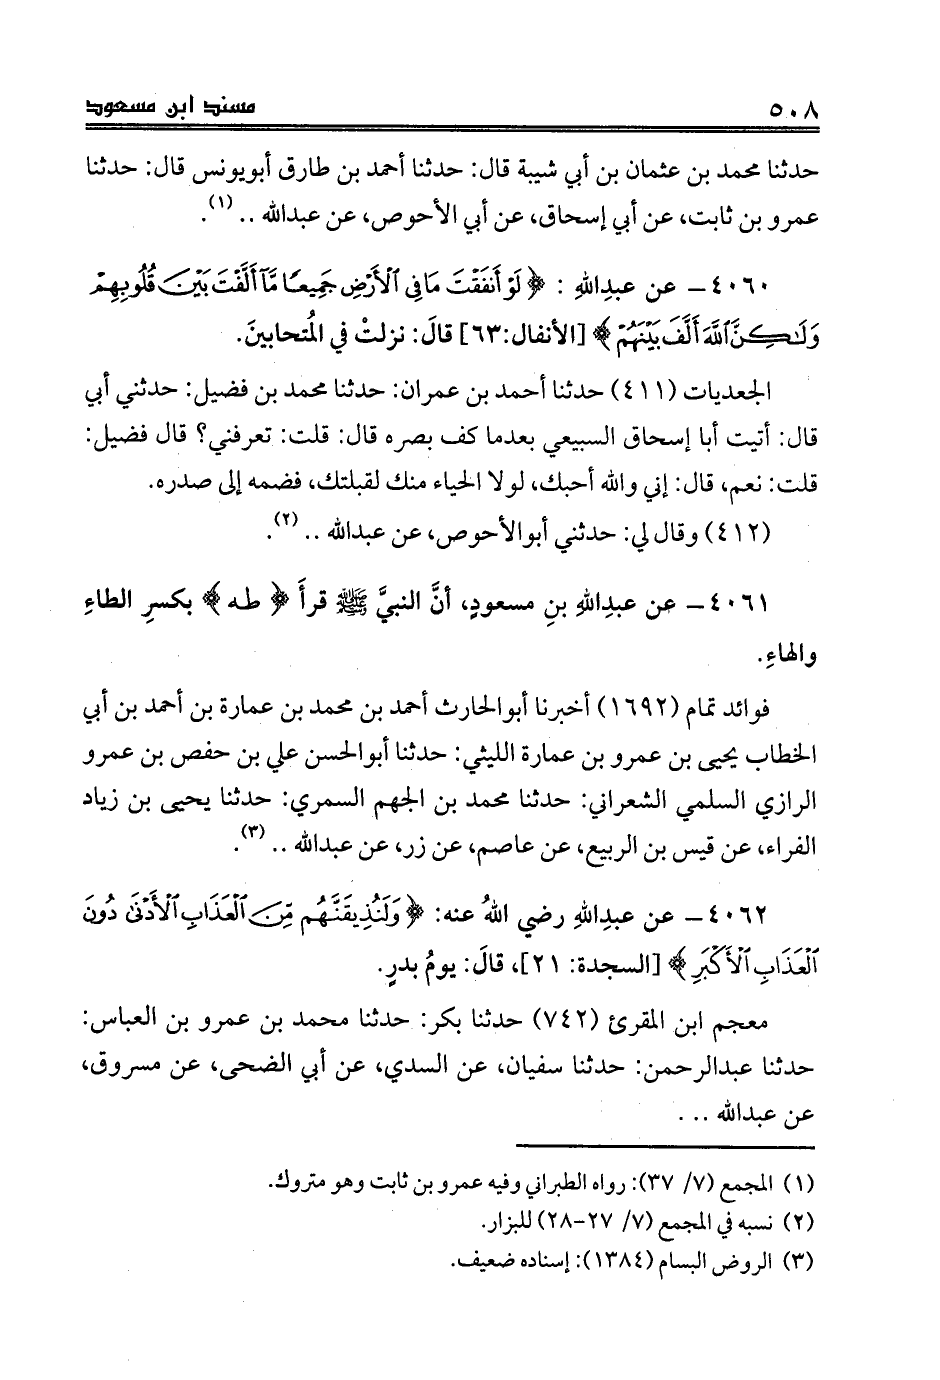 ٥٠٨ مسند ابن مسعود
حدثنا محمد بن عثمان بن أبي شيبة قال: حدثنا أحمد بن طارق أبويونس قال: حدثنا
عمرو بن ثابت، عن أبي إسحاق، عن أبي الأحوص، عن عبدالله .. (١).
٤٠٦٠ – عن عبدِاللهِ : ﴿ لَوْ أَنفَقْتَ مَا فِي ٱلْأَرْضِ جَمِيعًا مَّآ أَلَّفْتَ بَيْنَ قُلُوبِهِمْ
وَلَٰكِنَّ ٱللَّهَ أَلَّفَ بَيْنَهُمْ ﴾ [الأنفال:٦٣] قالَ: نزلتْ في المُتحابينَ.
الجعديات (٤١١) حدثنا أحمد بن عمران: حدثنا محمد بن فضيل: حدثني أبي
قال: أتيت أبا إسحاق السبيعي بعدما كف بصره قال: قلت: تعرفني؟ قال فضيل:
قلت: نعم، قال: إني والله أحبك، لولا الحياء منك لقبلتك، فضمه إلى صدره.
(٤١٢) وقال لي: حدثني أبوالأحوص، عن عبدالله .. (٢).
٤٠٦١ – عن عبدِاللهِ بنِ مسعودٍ، أنَّ النبيَّ ﷺ قرأَ ﴿ طه ﴾ بكسرِ الطاءِ
والهاءِ.
فوائد تمام (١٦٩٢) أخبرنا أبوالحارث أحمد بن محمد بن عمارة بن أحمد بن أبي
الخطاب يحيى بن عمرو بن عمارة الليثي: حدثنا أبوالحسن علي بن حفص بن عمرو
الرازي السلمي الشعراني: حدثنا محمد بن الجهم السمري: حدثنا يحيى بن زياد
الفراء، عن قيس بن الربيع، عن عاصم، عن زر، عن عبدالله .. (٣).
٤٠٦٢ – عن عبدِاللهِ رضي اللهُ عنه: ﴿ وَلَنُذِيقَنَّهُم مِّنَ ٱلْعَذَابِ ٱلْأَدْنَىٰ دُونَ
ٱلْعَذَابِ ٱلْأَكْبَرِ ﴾ [السجدة: ٢١]، قالَ: يومُ بدرٍ.
معجم ابن المقرئ (٧٤٢) حدثنا بكر: حدثنا محمد بن عمرو بن العباس:
حدثنا عبدالرحمن: حدثنا سفيان، عن السدي، عن أبي الضحى، عن مسروق،
عن عبدالله ...
(١) المجمع (٧/ ٣٧): رواه الطبراني وفيه عمرو بن ثابت وهو متروك.
(٢) نسبه في المجمع (٧/ ٢٧-٢٨) للبزار.
(٣) الروض البسام (١٣٨٤): إسناده ضعيف.